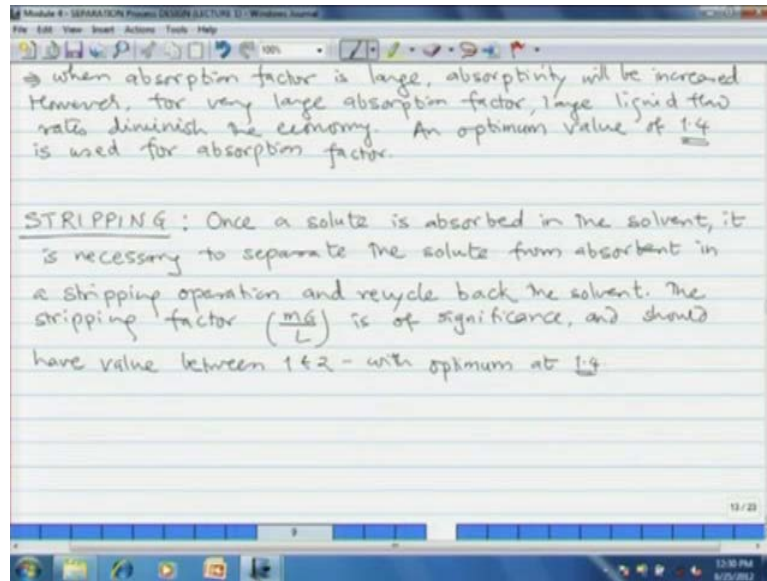 Module 4 - SEPARATION Process DESIGN (LECTURE 1) - Windows Journal
File Edit View Insert Actions Tools Help
100%
⇒ when absorption factor is large, absorptivity will be increased
However, for very large absorption factor, large liquid flow
rates diminish the economy. An optimum value of 1.4
is used for absorption factor.
STRIPPING : Once a solute is absorbed in the solvent, it
is necessary to separate the solute from absorbent in
a stripping operation and recycle back the solvent. The
stripping factor (mG/L) is of significance, and should
have value between 1 & 2 - with optimum at 1.4
13 / 23
9
12:30 PM
6/25/2012